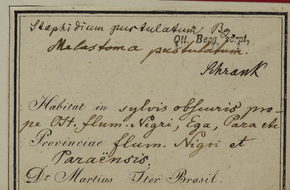 Staphidium pustulatum Bg
Ott. Berg. scrpt.
Melastoma pustulatum.
Schrank
Habitat in sylvis obscuris pro-
pe Ost. flum. Nigri, Ega, Para etc
Provinciae flum. Nigri et
Paraënsis.
Dr Martius Iter Brasil.